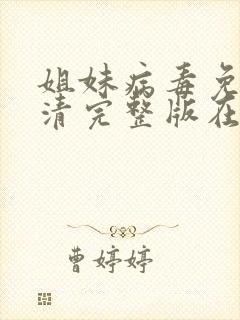 姐妹病毒免
清完整版在
曹婷婷